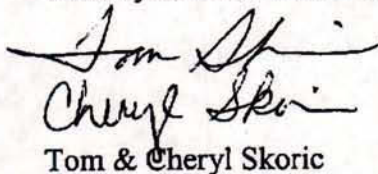 Tom Sk
Cheryl Skoric
Tom & Cheryl Skoric